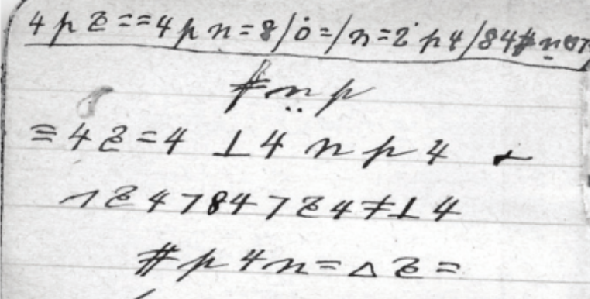 4 p Z = = 4 p n = 8 / ȯ = / n = 2 · p 4 / 8 4 # n
# n̤ p
= 4 Z = 4 ⊥ 4 n p 4
1 Z 4 7 8 4 7 Z 4 ≠ ⊥ 4
# p 4 n = △ Z =